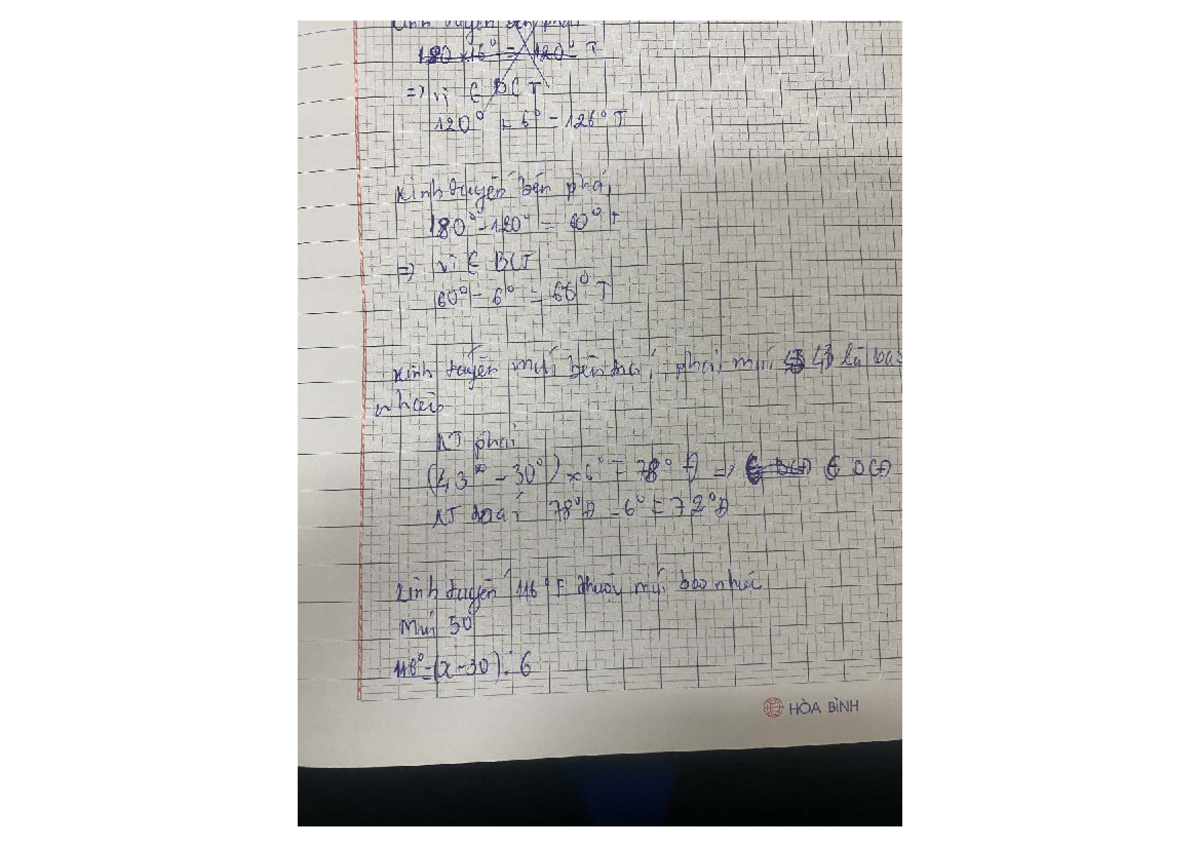 Kinh tuyến bên phải
180 × 6° = 120° T
=> vì ∈ BCT
120° + 6° = 126° T
Kinh tuyến bên phải
180° - 120° = 60° T
=> vì ∈ BCT
60° - 6° = 66° T
Kinh tuyến múi bên trái, phải múi 43 là bao
nhiêu
KT phải
(43° - 30°) × 6° = 78° Đ => ∈ BCĐ
KT trái 78°Đ - 6° = 72°Đ
Kinh tuyến 116° E thuộc múi bao nhiêu
Múi 50
116° = (x - 30) . 6
HÒA BÌNH